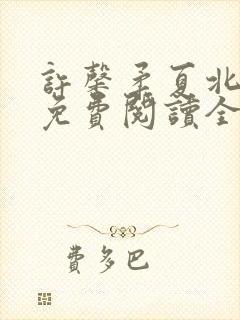 許馨矛夏北
免費閱讀全
費多巴